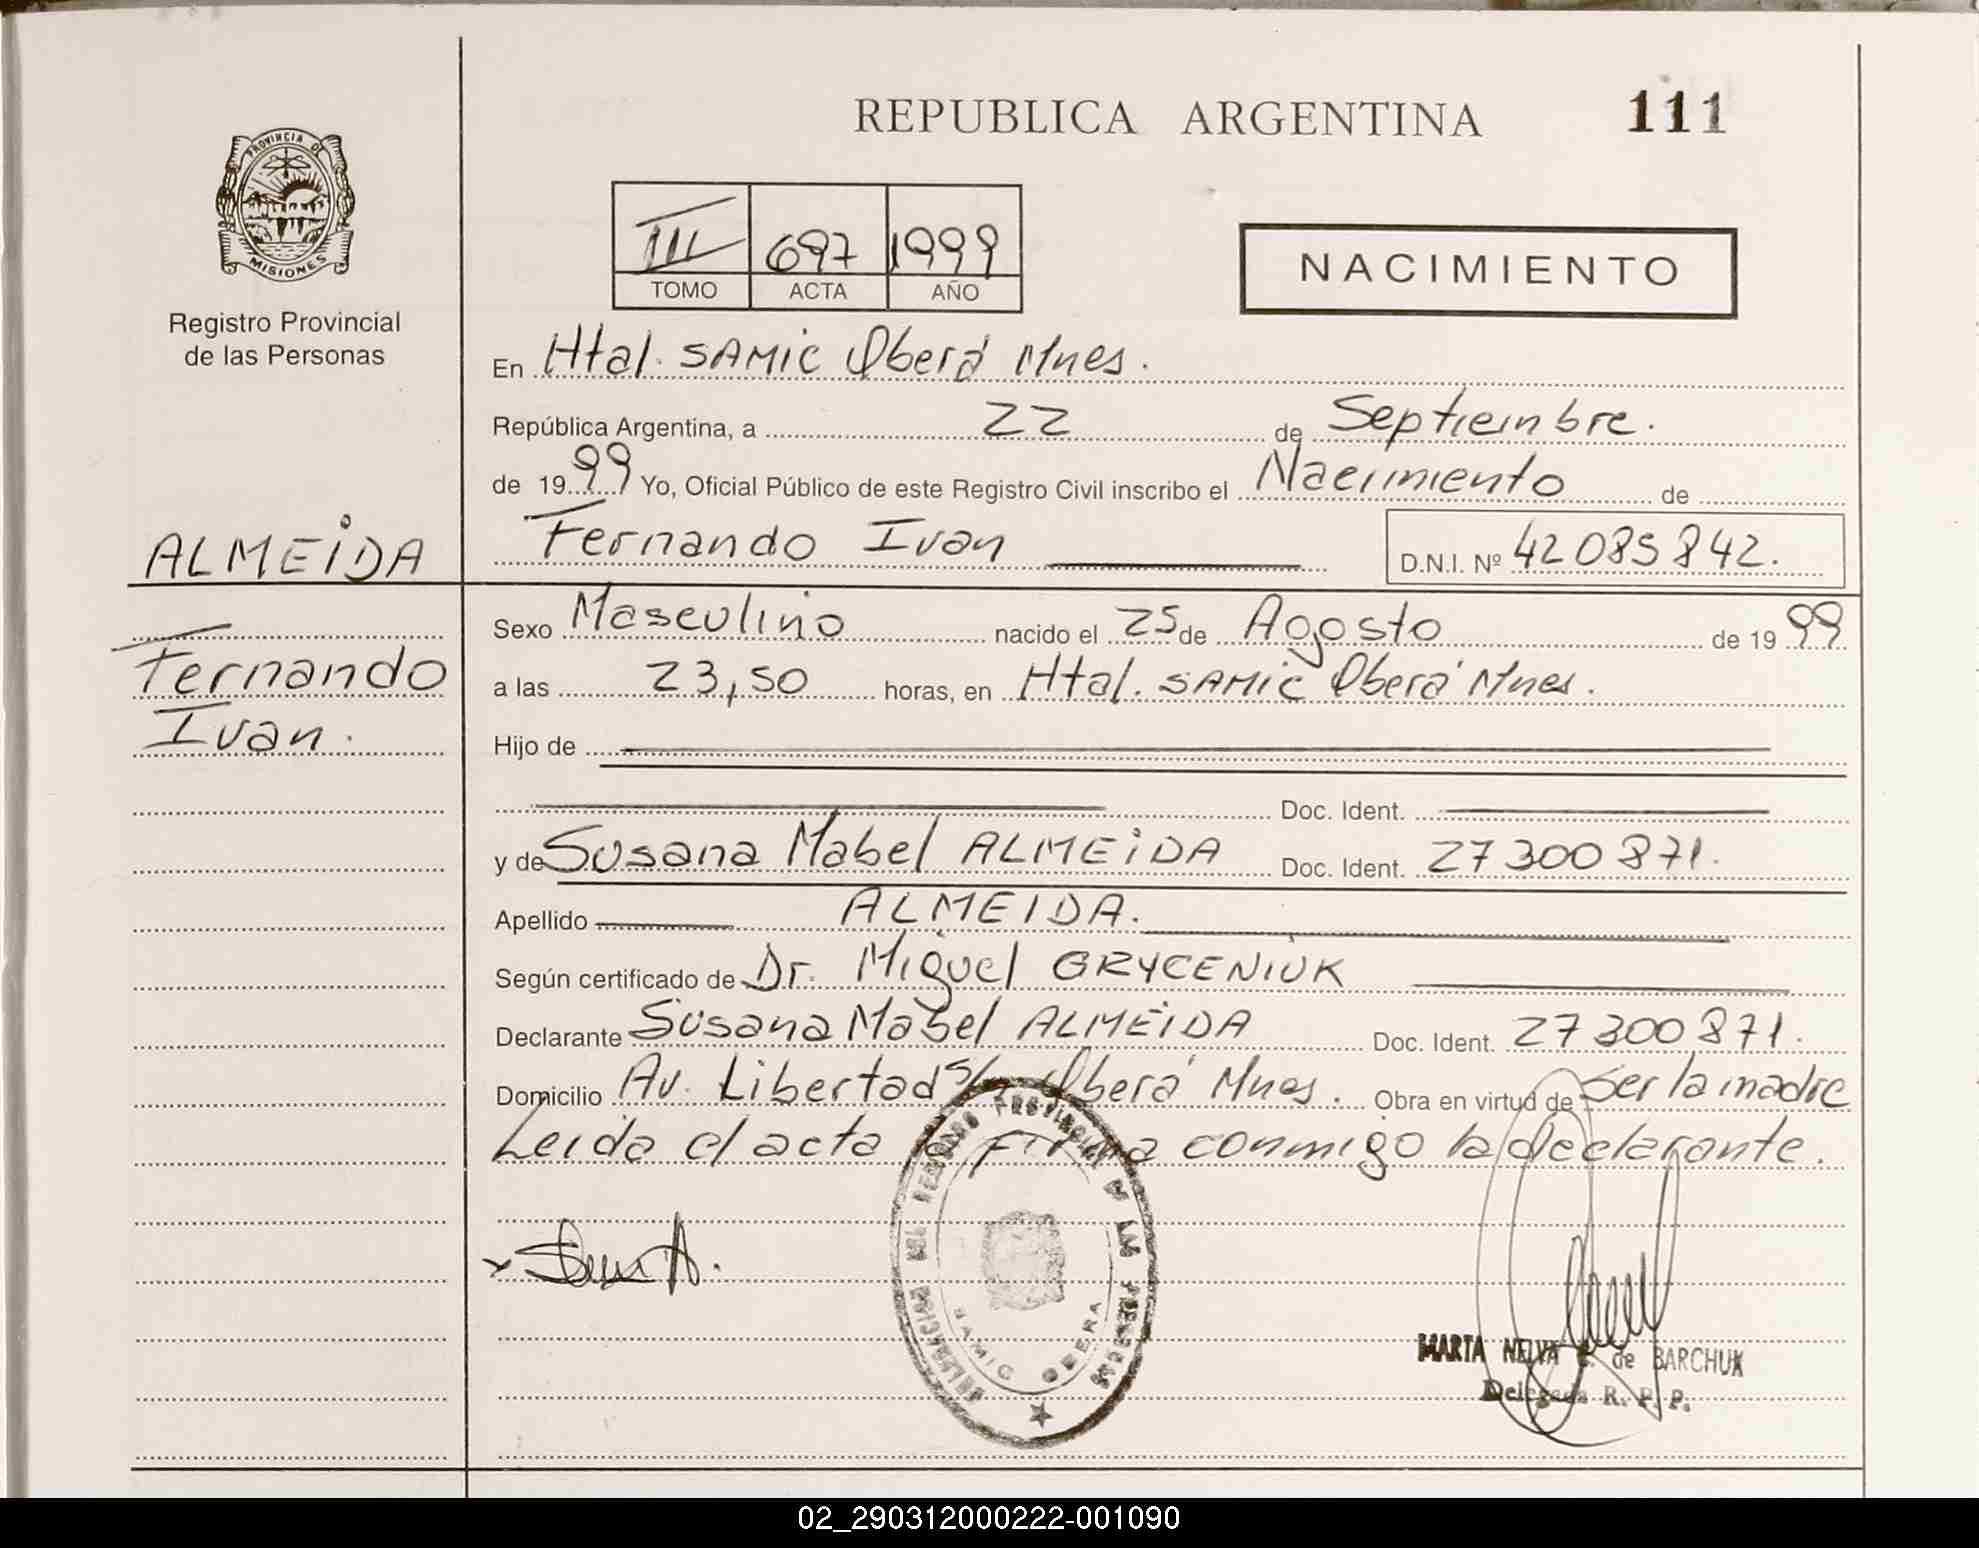 REPUBLICA ARGENTINA 111
PROVINCIA DE
MISIONES
Registro Provincial
de las Personas
III 697 1999
TOMO ACTA AÑO
NACIMIENTO
En Htal. SAMIC Oberá Mnes.
República Argentina, a 22 de Septiembre.
de 1999 Yo, Oficial Público de este Registro Civil inscribo el Nacimiento de
Fernando Ivan D.N.I. Nº 42085842.
ALMEIDA
Fernando
Ivan.
Sexo Masculino nacido el 25 de Agosto de 1999
a las 23,50 horas, en Htal. SAMIC Oberá Mnes.
Hijo de
Doc. Ident.
y de Susana Mabel ALMEIDA Doc. Ident. 27300871.
Apellido ALMEIDA.
Según certificado de Dr. Miguel GRYCENIUK
Declarante Susana Mabel ALMEIDA Doc. Ident. 27300871.
Domicilio Av. Libertad s/n Oberá Mnes. Obra en virtud de Ser la madre
Leida el acta la firma conmigo la declarante.
DELEGACION DEL REGISTRO PROVINCIAL DE LAS PERSONAS
SAMIC OBERA
MARTA NELVA de BARCHUK
Delegada R. P. P.
02_290312000222-001090